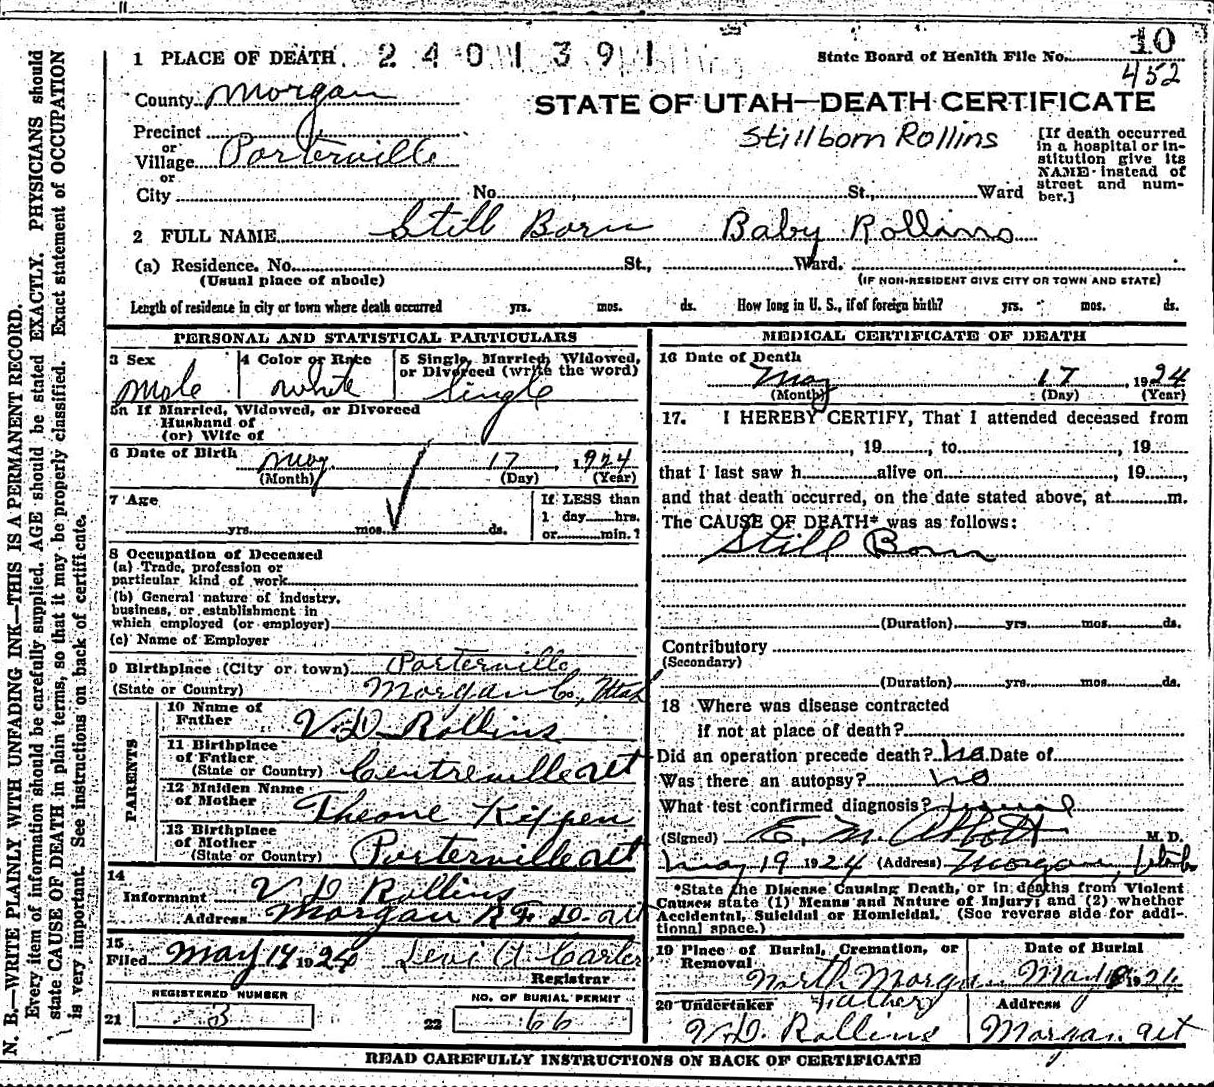 1 PLACE OF DEATH. 2401391 State Board of Health File No. 10
452
County Morgan STATE OF UTAH—DEATH CERTIFICATE
Precinct
or
Village Porterville
or
City No. St., Ward
Stillborn Rollins
[If death occurred
in a hospital or in-
stitution give its
NAME instead of
street and num-
ber.]
2 FULL NAME Still Born Baby Rollins
(a) Residence. No. St., Ward.
(Usual place of abode) (IF NON-RESIDENT GIVE CITY OR TOWN AND STATE)
Length of residence in city or town where death occurred yrs. mos. ds. How long in U. S., if of foreign birth? yrs. mos. ds.
PERSONAL AND STATISTICAL PARTICULARS
3 Sex 4 Color or Race 5 Single, Married, Widowed,
or Divorced (write the word)
Male White Single
5a If Married, Widowed, or Divorced
Husband of
(or) Wife of
6 Date of Birth May 17 1924
(Month) (Day) (Year)
7 Age If LESS than
1 day hrs.
yrs. mos. ds. or min.?
8 Occupation of Deceased
(a) Trade, profession or
particular kind of work
(b) General nature of industry,
business, or establishment in
which employed (or employer)
(c) Name of Employer
9 Birthplace (City or town) Porterville
(State or Country) Morgan Co., Utah
PARENTS
10 Name of
Father V. D. Rollins
11 Birthplace
of Father
(State or Country) Centreville Ut
12 Maiden Name
of Mother Theone Kippen
13 Birthplace
of Mother
(State or Country) Porterville Ut
14
Informant V. D. Rollins
Address Morgan R. F. D. Ut
15
Filed May 19 1924 Levi A Carter
Registrar
REGISTERED NUMBER NO. OF BURIAL PERMIT
21 3 22 66
MEDICAL CERTIFICATE OF DEATH
16 Date of Death
May 17, 1924
(Month) (Day) (Year)
17. I HEREBY CERTIFY, That I attended deceased from
, 19 , to , 19
that I last saw h alive on , 19 ,
and that death occurred, on the date stated above, at m.
The CAUSE OF DEATH* was as follows:
Still Born
(Duration) yrs. mos. ds.
Contributory
(Secondary)
(Duration) yrs. mos. ds.
18 Where was disease contracted
if not at place of death?
Did an operation precede death? no Date of
Was there an autopsy? no
What test confirmed diagnosis?
(Signed) E. M. Abbott M. D.
May 19 1924 (Address) Morgan, Utah
*State the Disease Causing Death, or in deaths from Violent
Causes state (1) Means and Nature of Injury; and (2) whether
Accidental, Suicidal or Homicidal. (See reverse side for addi-
tional space.)
19 Place of Burial, Cremation, or
Removal Date of Burial
North Morgan May 1924
20 Undertaker Father Address
V. D. Rollins Morgan Ut
READ CAREFULLY INSTRUCTIONS ON BACK OF CERTIFICATE
N. B.—WRITE PLAINLY, WITH UNFADING INK—THIS IS A PERMANENT RECORD.
Every item of information should be carefully supplied. AGE should be stated EXACTLY. PHYSICIANS should
state CAUSE OF DEATH in plain terms, so that it may be properly classified. Exact statement of OCCUPATION
is very important. See instructions on back of certificate.